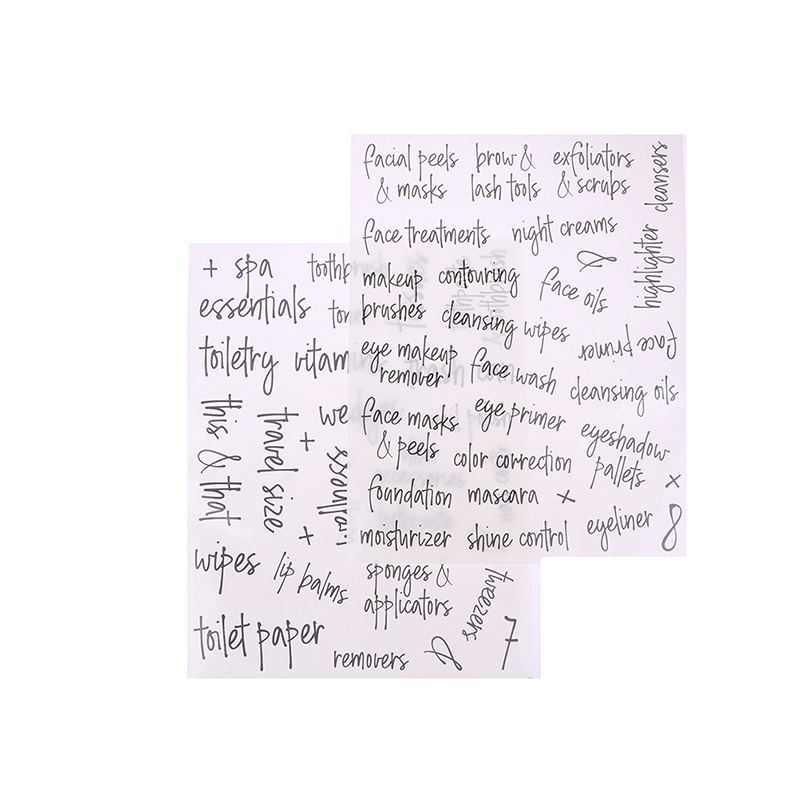 facial peels
& masks
brow &
lash tools
exfoliators
& scrubs
cleansers
face treatments
night creams
&
highlighter
makeup
brushes
contouring
face oils
cleansing wipes
face primer
eye makeup
remover
face wash
cleansing oils
face masks
& peels
eye primer
color correction
eyeshadow
pallets
x
foundation
mascara
x
moisturizer
shine control
eyeliner
8
+ spa
essentials
toiletry
this & that
travel size
+
+
wipes
lip balms
sponges &
applicators
tweezers
toilet paper
removers
&
7